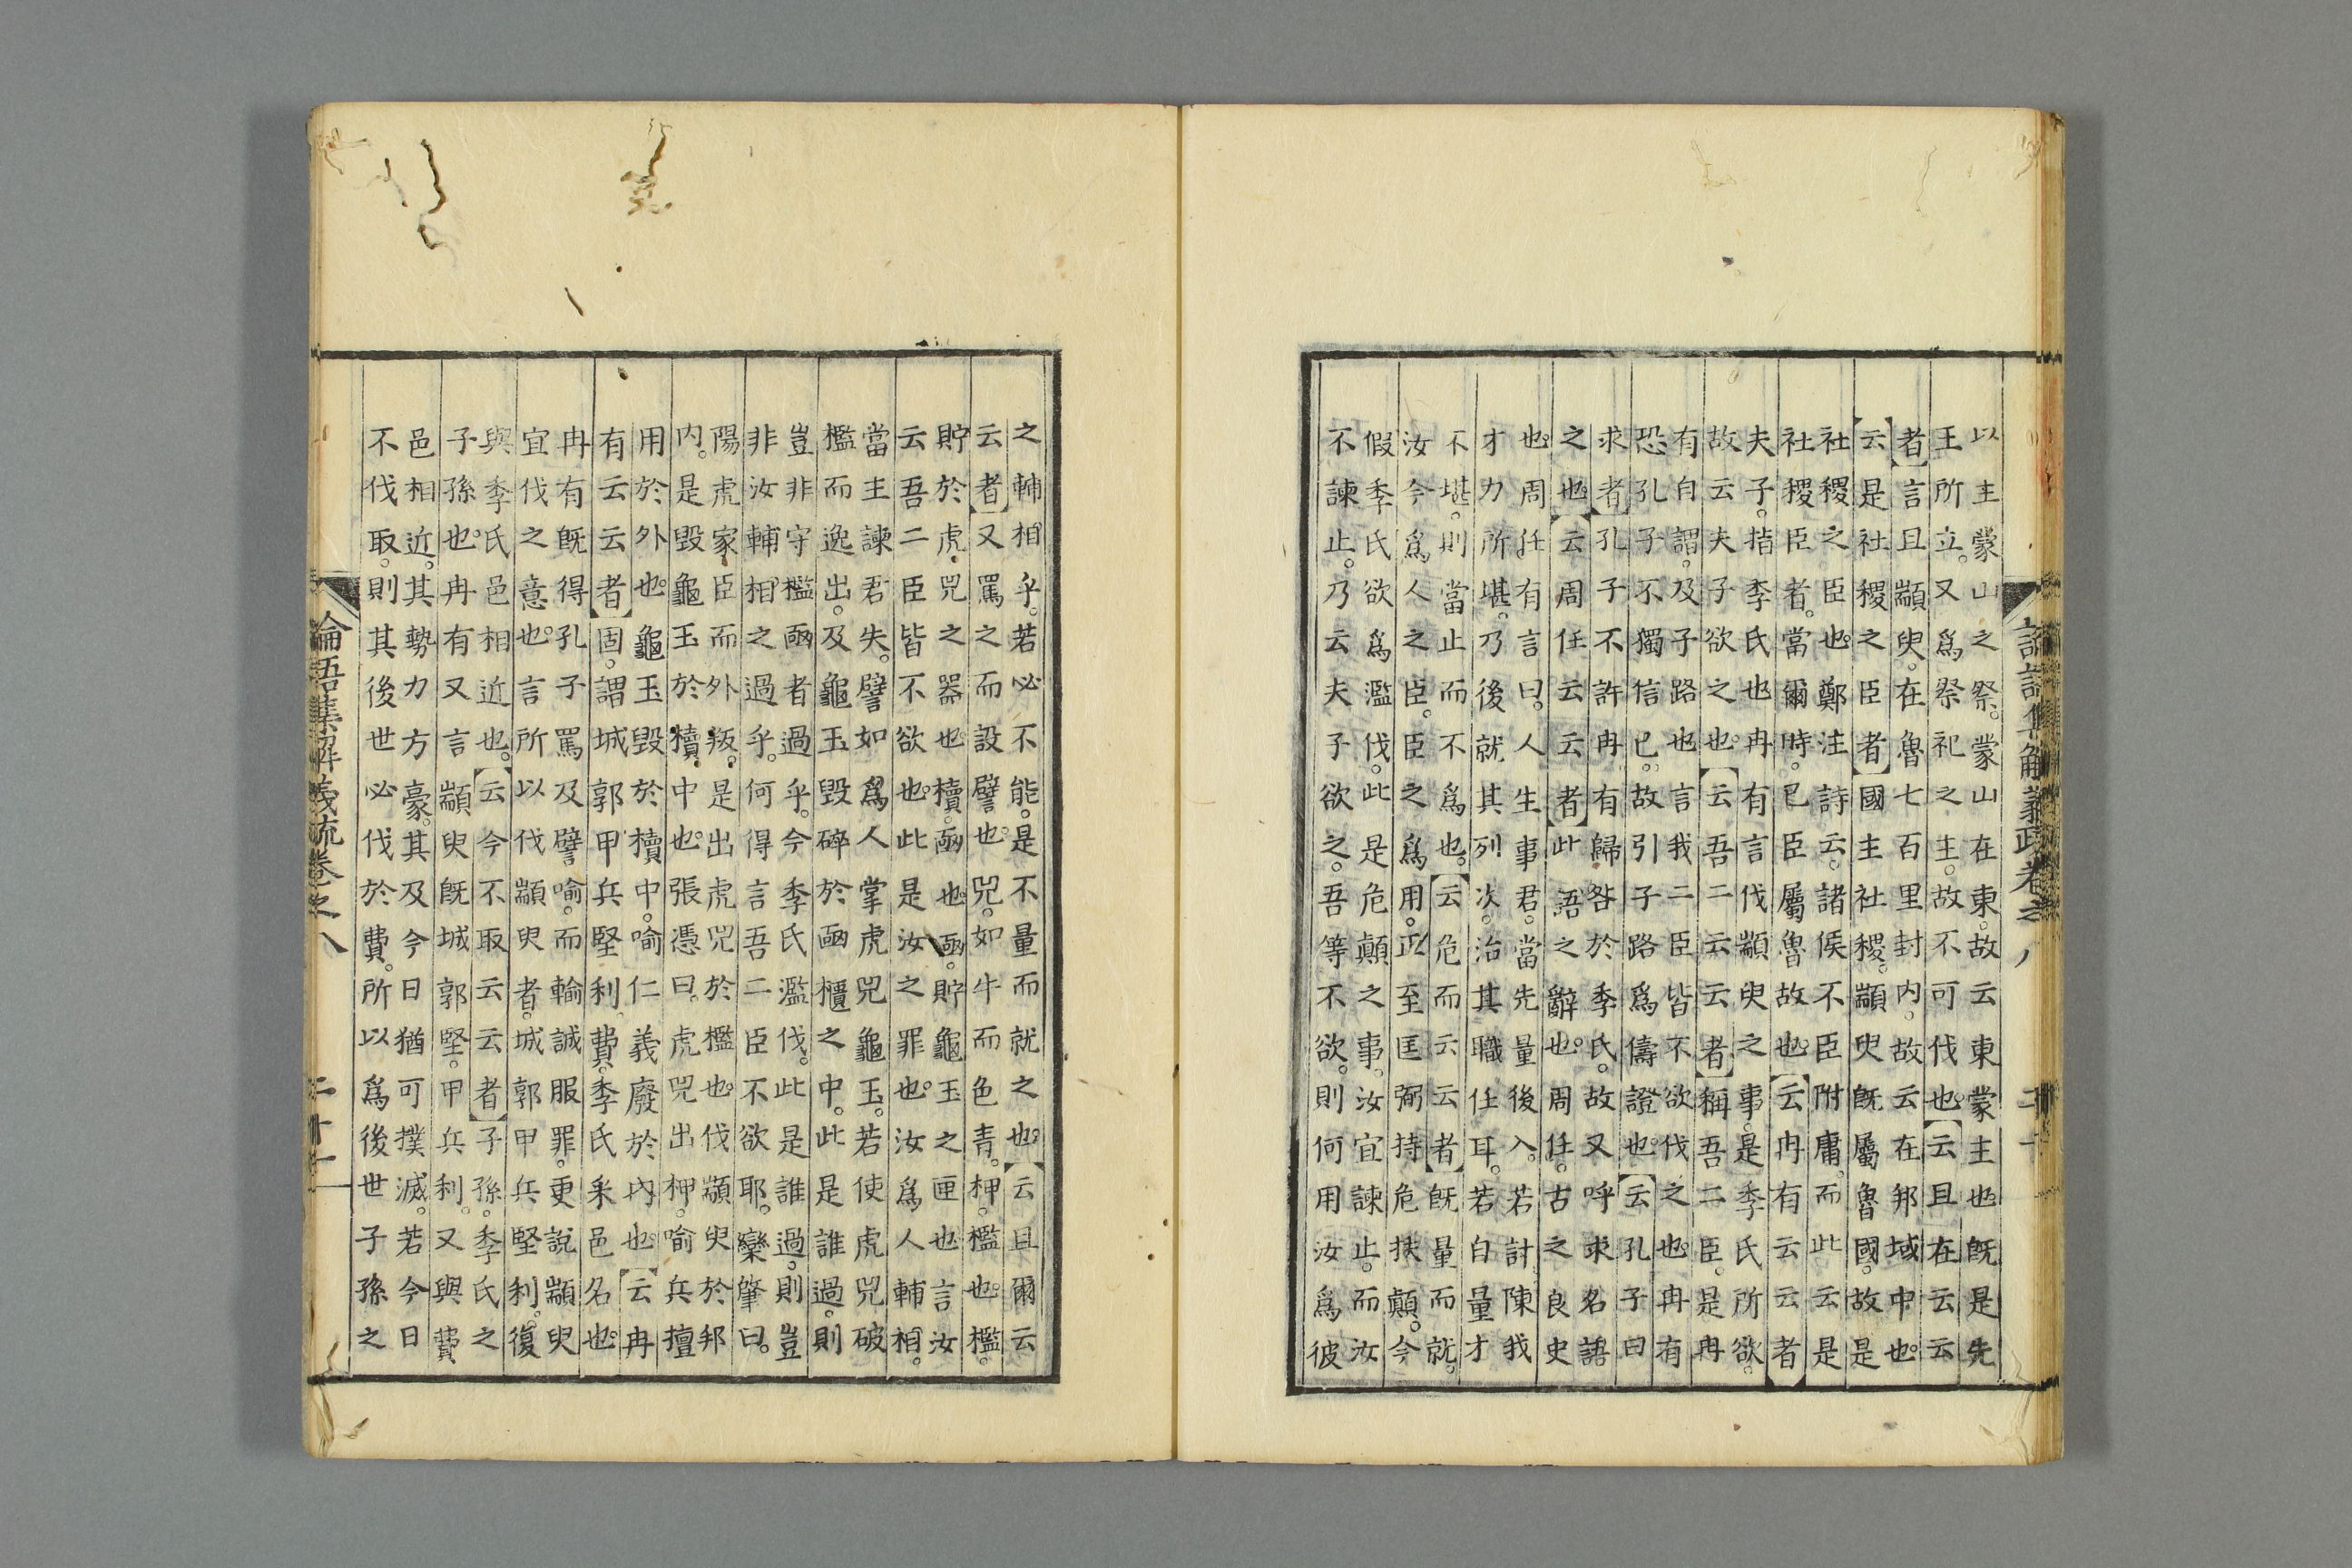 以主蒙山之祭。蒙山在東。故云東蒙主也既是先
王所立。又爲祭祀之主。故不可伐也。【云且在云云
者】言且顓臾。在魯七百里封内。故云在邦域中也。
【云是社稷之臣者】國主社稷。顓臾既屬魯國。故是
社稷之臣也。鄭注詩云。諸侯不臣附庸。而此云是
社稷臣者。當爾時。已臣屬魯故也。【云冉有云云者】
夫子。指季氏也冉有言伐顓臾之事。是季氏所欲。
故云夫子欲之也。【云吾二云云者】稱吾二臣。是冉
有自謂。及子路也言我二臣皆不欲伐之也。冉有
恐孔子不獨信已。故引子路爲儔證也。【云孔子曰
求者】孔子不許冉有歸咎於季氏。故又呼求名語
之也。【云周任云云者】此語之辭也。周任。古之良史
也。周任有言曰。人生事君。當先量後入。若計陳我
才力所堪。乃後就其列次。治其職任耳。若自量才
不堪。則當止而不爲也。【云危而云云者】既量而就。
汝今爲人之臣。臣之爲用。正至匡弼持危扶顛。今
假季氏欲爲濫伐。此是危顛之事。汝宜諫止。而汝
不諫止。乃云夫子欲之。吾等不欲。則何用汝爲彼
之輔相乎。若必不能。是不量而就之也。【云且爾云
云者】又罵之而設譬也。兕。如牛而色青。柙。檻也。檻。
貯於虎兕之器也。櫝。凾也。凾。貯龜玉之匣也言汝
云吾二臣皆不欲也。此是汝之罪也。汝爲人輔相。
當主諫君失。譬如爲人掌虎兕龜玉。若使虎兕破
檻而逸出。及龜玉毀碎於凾櫃之中。此是誰過。則
豈非守檻凾者過乎。今季氏濫伐。此是誰過。則豈
非汝輔相之過乎。何得言吾二臣不欲耶。欒肇曰。
陽虎家臣而外叛。是出虎兕於檻也。伐顓臾於邦
内。是毀龜玉於櫝中也。張憑曰。虎兕出柙。喻兵擅
用於外也。龜玉毀於櫝中。喻仁義廢於内也。【云冉
有云云者】固。謂城郭甲兵堅利。費。季氏采邑名也。
冉有既得孔子罵及譬喻。而輸誠服罪。更說顓臾
宜伐之意也。言所以伐顓臾者。城郭甲兵堅利。復
與季氏邑相近也。【云今不取云云者】子孫。季氏之
子孫也。冉有又言顓臾既城郭堅。甲兵利。又與費
邑相近。其勢力方豪。其及今日猶可撲滅。若今日
不伐取。則其後世必伐於費。所以爲後世子孫之
論語集解義疏卷之八 二十一